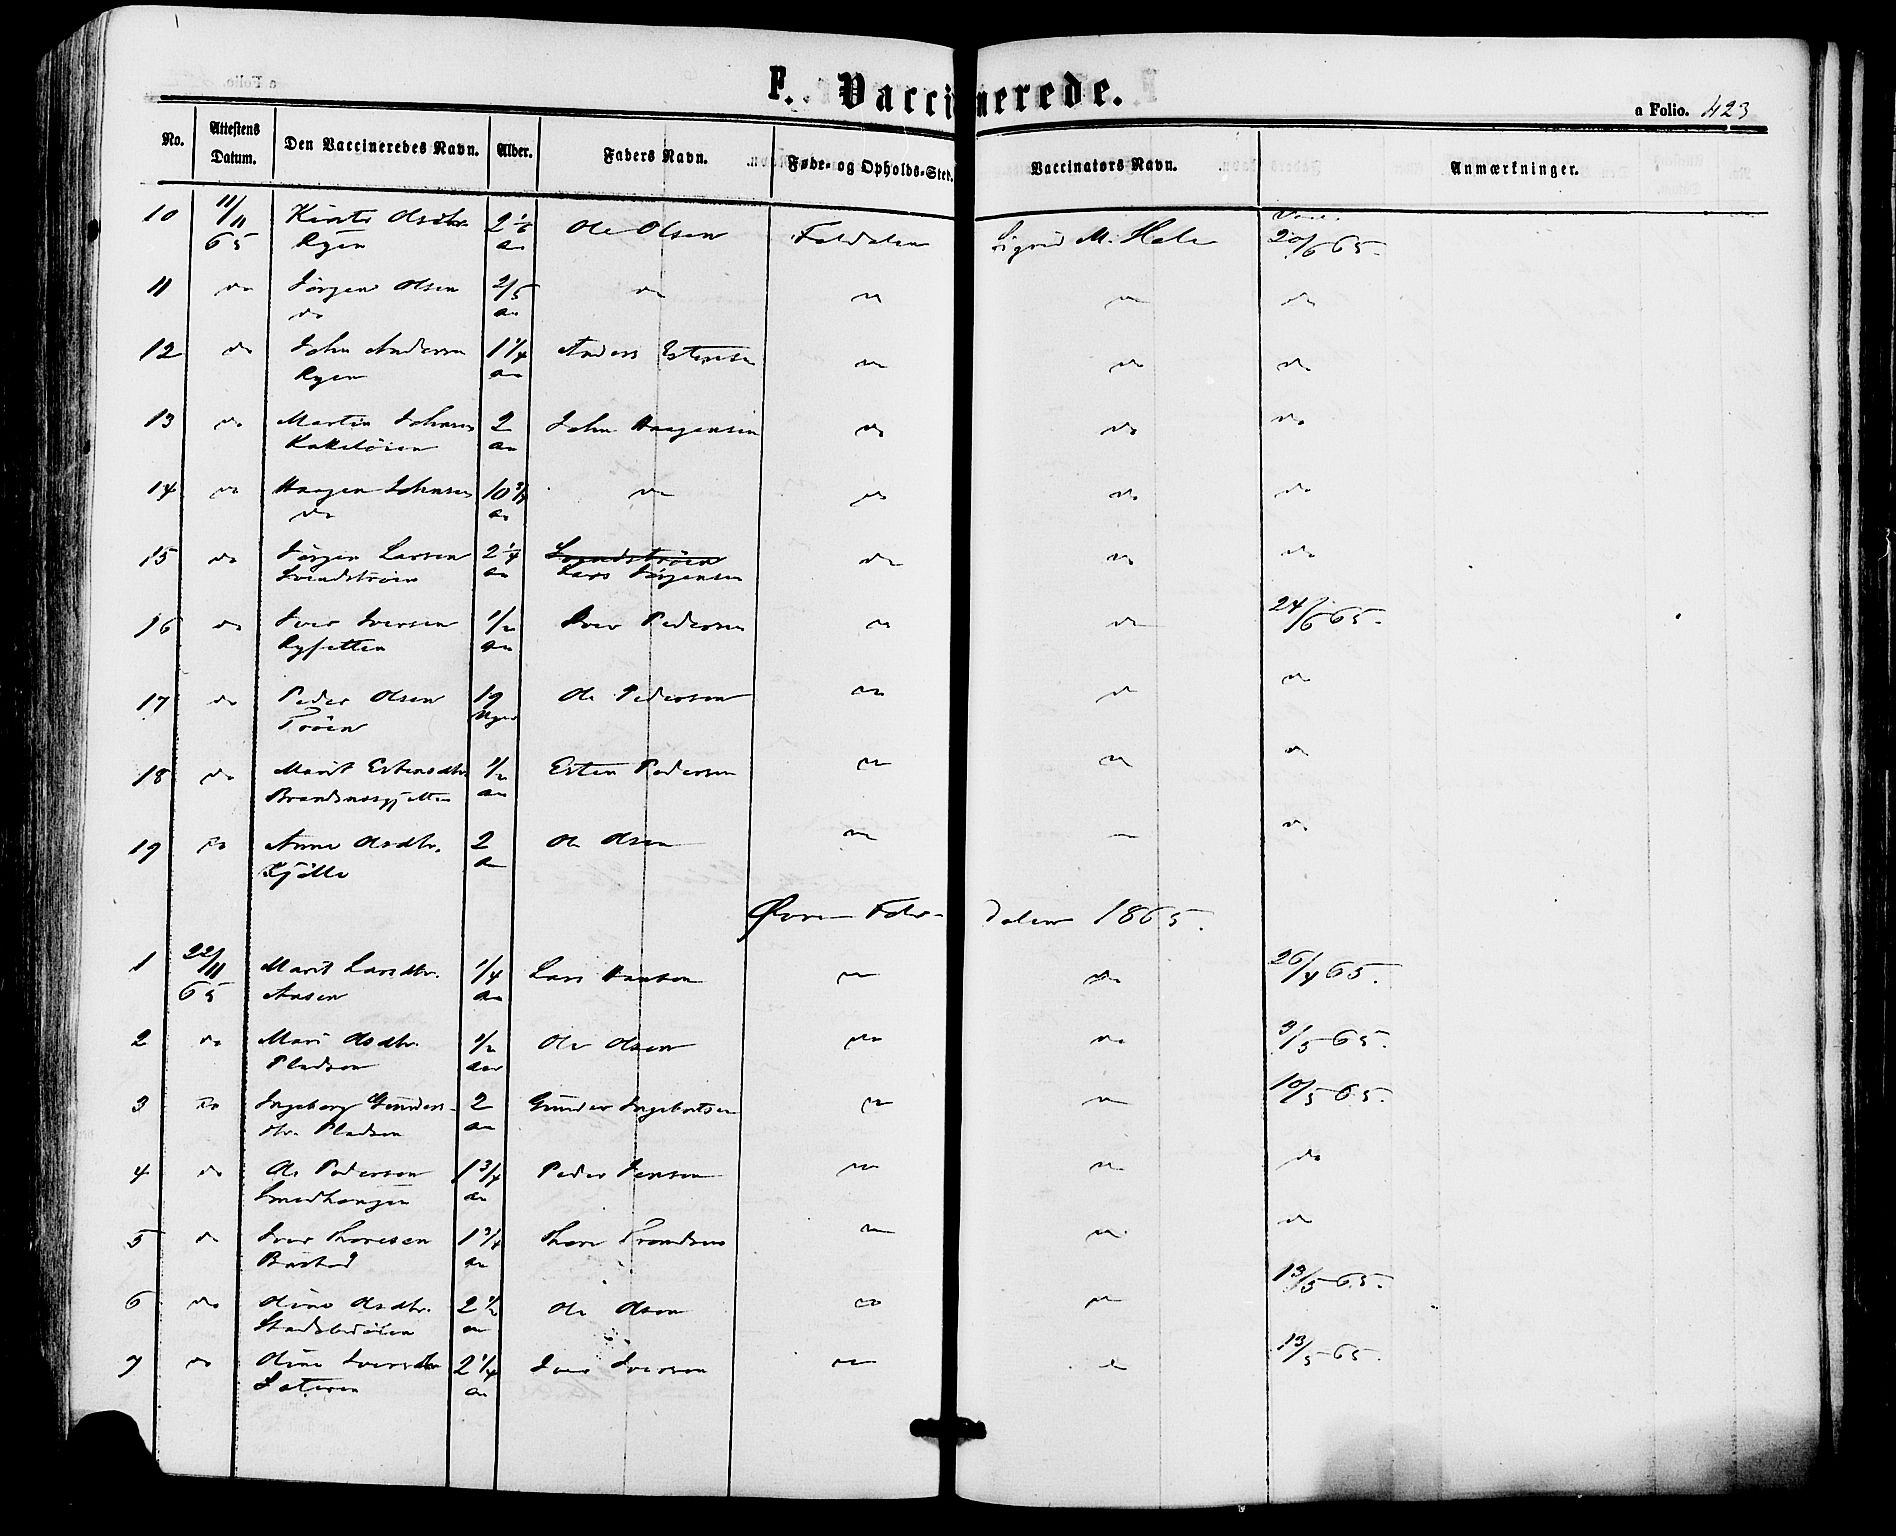 F. Vaccinerede.
a Folio. 423
No. Attestens Datum. Den Vaccineredes Navn. Alder. Faders Navn. Føde- og Opholds-Sted. Vaccinators Navn. Anmærkninger.
10 11/11 Olsdtr. 2 Ole Olsen Foldalen Sigrid M. Vacc. 20/6 65.
65 Ryen
11 do Jørgen Olsen 2/5 do do do do
do
12 do John Andersen 1 1/4 Anders Estensen do do do
Ryen
13 do Martin Johnsen 2 John Haagensen do do do
14 do Haagen Johnsen 10 3/4 do do do do
do
15 do Jørgen Larsen 2 1/4 do do do
Lars Jørgensen
16 do Iver Iversen 1/2 Iver Pedersen do do 24/6 65.
17 do Peder Olsen 19 Ole Pedersen do do do
Trøen Uger
18 do Marit Estensdtr. 1/2 Esten Pedersen do do do
19 do Anne Olsdtr. 2 Ole Olsen do do do
Øvre Fol- dalen 1865.
1 22/11 Marit Larsdtr. 1/4 Lars Hansen do do 26/4 65.
65 Aasen
2 do Mari Olsdtr. 1/2 Ole Olsen do do 9/5 65.
Pladsen Aar
3 do Ingeborg Gunders- 2 Gunder Ingebretsen do do 10/5 65.
dtr. Pladsen
4 do Ole Pedersen 1 3/4 Peder Jensen do do do
5 do Iver Thoresen 1 3/4 Thore Trondsen do do do
6 do Oline Olsdtr. 2 1/2 Ole Olsen do do 13/5 65.
7 do Oline Iversdtr 2 1/4 Iver Iversen do do 13/5 65.